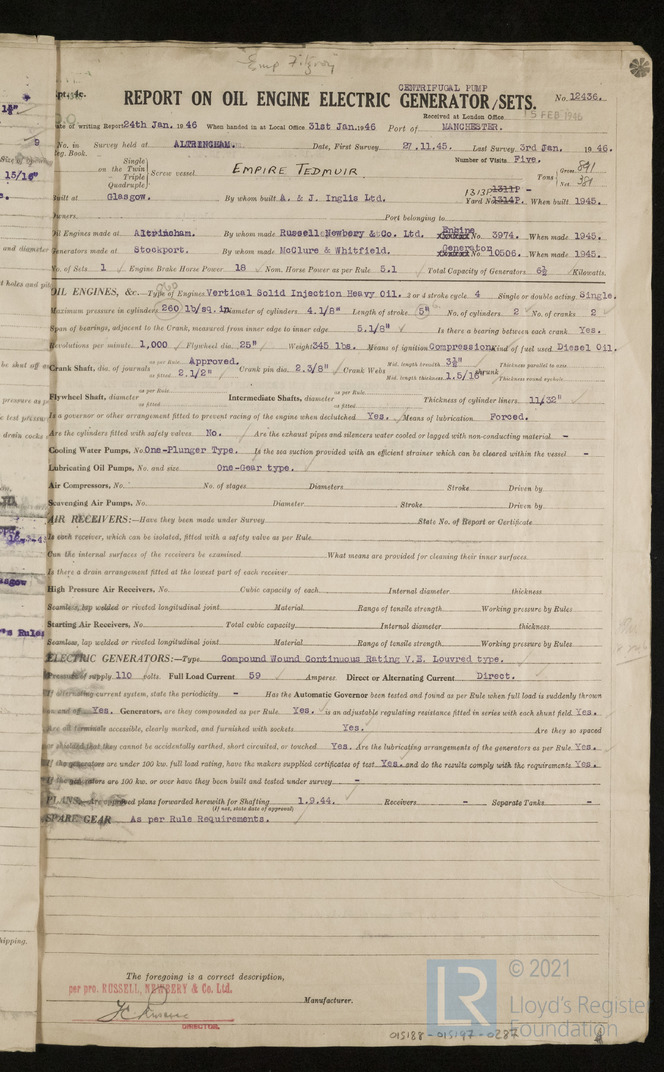 Emp Fitzroy
Rpt. 4c.
CENTRIFUGAL PUMP
REPORT ON OIL ENGINE ELECTRIC GENERATOR/SETS.
No. 12436.
Received at London Office 15 FEB 1946
Date of writing Report 24th Jan. 1946 When handed in at Local Office 31st Jan. 1946 Port of MANCHESTER.
No. in Survey held at ALTRINCHAM. Date, First Survey 27.11.45. Last Survey 3rd Jan. 1946.
Reg. Book. Number of Visits Five.
Single on the Twin Triple Quadruple Screw vessel EMPIRE TEDMUIR Tons Gross 891 Net 381
Built at Glasgow. By whom built A. & J. Inglis Ltd. Yard No. 1313P 1311P 1314P. When built 1945.
Owners Port belonging to
Oil Engines made at Altrincham. By whom made Russell Newbery & Co. Ltd. Engine No. 3974. When made 1945.
Generators made at Stockport. By whom made McClure & Whitfield. Generator No. 10506. When made 1945.
No. of Sets 1 Engine Brake Horse Power 18 Nom. Horse Power as per Rule 5.1 Total Capacity of Generators 6½ Kilowatts.
OIL ENGINES, &c.—Type of Engines Vertical Solid Injection Heavy Oil. 2 or 4 stroke cycle 4 Single or double acting Single.
Maximum pressure in cylinders 260 lb/sq.in Diameter of cylinders 4.1/8" Length of stroke 5" No. of cylinders 2 No. of cranks 2
Span of bearings, adjacent to the Crank, measured from inner edge to inner edge 5.1/8" Is there a bearing between each crank Yes.
Revolutions per minute 1,000 Flywheel dia. 25" Weight 345 lbs. Means of ignition Compression Kind of fuel used Diesel Oil.
Crank Shaft, dia. of journals as per Rule Approved. as fitted 2.1/2" Crank pin dia. 2.3/8" Crank Webs Mid. length breadth 3½" Mid. length thickness 1.5/16" shrunk Thickness parallel to axis Thickness round eyehole
Flywheel Shaft, diameter as per Rule as fitted Intermediate Shafts, diameter as per Rule as fitted Thickness of cylinder liners 11/32"
Is a governor or other arrangement fitted to prevent racing of the engine when declutched Yes. Means of lubrication Forced.
Are the cylinders fitted with safety valves No. Are the exhaust pipes and silencers water cooled or lagged with non-conducting material -
Cooling Water Pumps, No. One-Plunger Type. Is the sea suction provided with an efficient strainer which can be cleared within the vessel -
Lubricating Oil Pumps, No. and size One-Gear type.
Air Compressors, No. No. of stages Diameters Stroke Driven by
Scavenging Air Pumps, No. Diameter Stroke Driven by
AIR RECEIVERS:—Have they been made under Survey State No. of Report or Certificate
Is each receiver, which can be isolated, fitted with a safety valve as per Rule
Can the internal surfaces of the receivers be examined What means are provided for cleaning their inner surfaces
Is there a drain arrangement fitted at the lowest part of each receiver
High Pressure Air Receivers, No. Cubic capacity of each Internal diameter thickness
Seamless, lap welded or riveted longitudinal joint Material Range of tensile strength Working pressure by Rules
Starting Air Receivers, No. Total cubic capacity Internal diameter thickness
Seamless, lap welded or riveted longitudinal joint Material Range of tensile strength Working pressure by Rules
ELECTRIC GENERATORS:—Type Compound Wound Continuous Rating V.E. Louvred type.
Pressure of supply 110 volts. Full Load Current 59 Amperes. Direct or Alternating Current Direct.
If alternating current system, state the periodicity - Has the Automatic Governor been tested and found as per Rule when full load is suddenly thrown
on and off Yes. Generators, are they compounded as per Rule Yes. is an adjustable regulating resistance fitted in series with each shunt field Yes.
Are all terminals accessible, clearly marked, and furnished with sockets Yes. Are they so spaced
or shielded that they cannot be accidentally earthed, short circuited, or touched Yes. Are the lubricating arrangements of the generators as per Rule Yes.
If the generators are under 100 kw. full load rating, have the makers supplied certificates of test Yes. and do the results comply with the requirements Yes.
If the generators are 100 kw. or over have they been built and tested under survey -
PLANS.—Are approved plans forwarded herewith for Shafting 1.9.44. Receivers - Separate Tanks -
(If not, state date of approval)
SPARE GEAR As per Rule Requirements.
The foregoing is a correct description,
per pro. RUSSELL, NEWBERY & Co. Ltd.
Manufacturer.
DIRECTOR.
015188-015197-0287
LR
© 2021
Lloyd's Register
Foundation